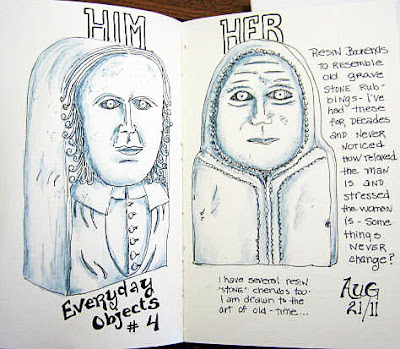 HIM
Everyday
Objects
# 4
HER
RESIN BOOKENDS
TO RESEMBLE
old grave
STONE RUB-
BINGS - I'VE
HAD THESE
FOR DECADES
AND NEVER
NOTICED
HOW RELAXED
THE MAN
IS AND
STRESSED
THE WOMAN
IS - SOME
THINGS
NEVER
CHANGE?
I have several resin
"STONE" cherubs too-
I am drawn to the
art of old-time...
AUG
21/11